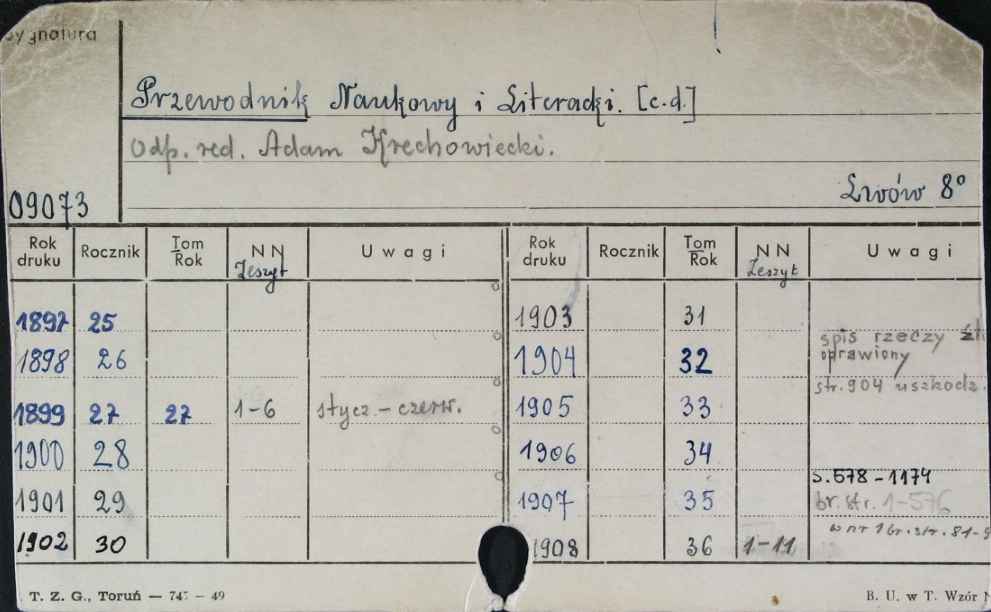 Sygnatura
Przewodnik Naukowy i Literacki. [c.d.]
Odp. red. Adam Krechowiecki.
09073
Lwów 8°
Rok druku Rocznik Tom Rok NN Zeszyt Uwagi Rok druku Rocznik Tom Rok NN Zeszyt Uwagi
1897 25 1903 31
1898 26 1904 32 spis rzeczy
oprawiony
str. 904 uszkodz.
1899 27 27 1-6 stycz. - czerw. 1905 33
1900 28 1906 34
1901 29 1907 35 s. 578 - 1174
br. str. 1-576
1902 30 1908 36 1-11 w nr 1 br. str. 81-
T. Z. G., Toruń — 747 — 49
B. U. w T. Wzór